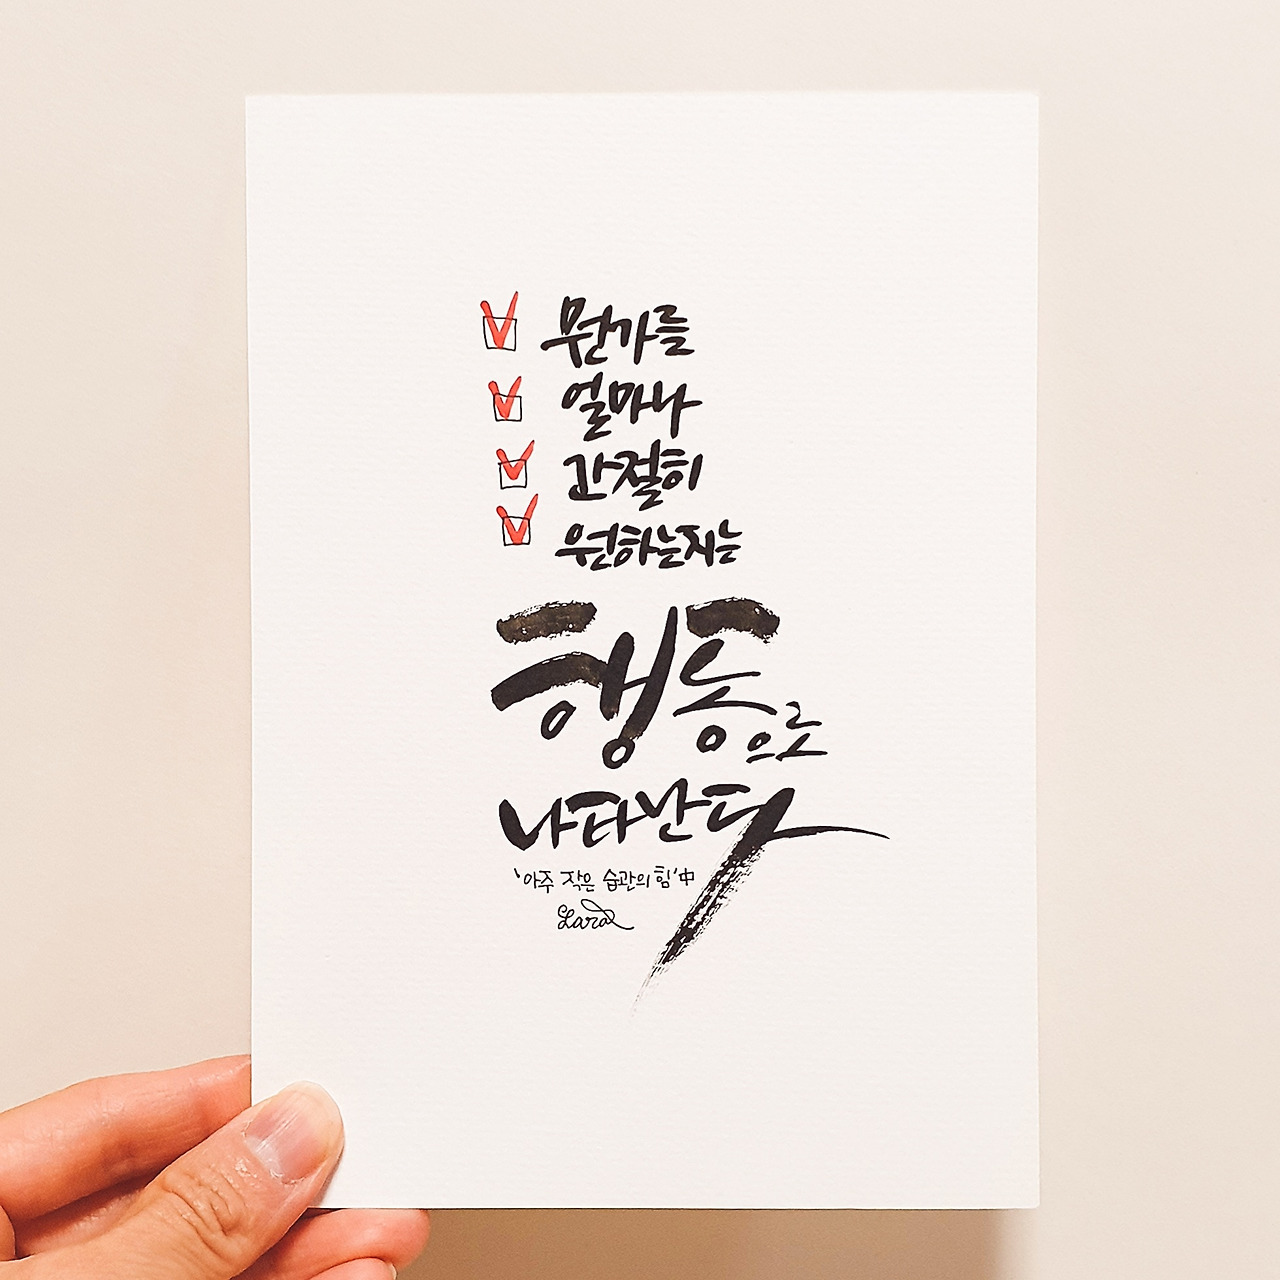 뭔가를
얼마나
간절히
원하는지는
행동으로
나타난다
'아주 작은 습관의 힘' 中
Lara